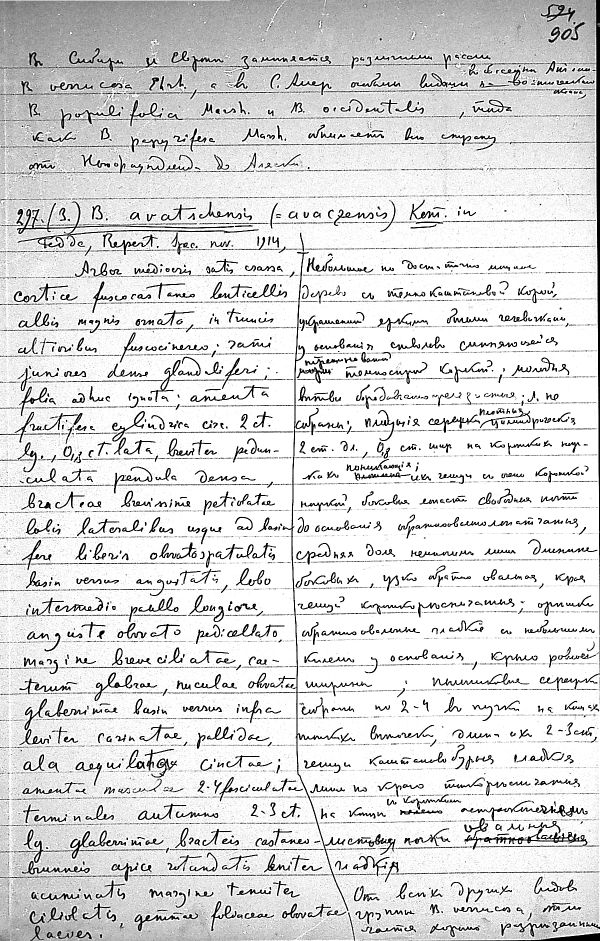 524
905
Въ Сибири и Европѣ заменяется различными расами
B verrucosa Ehrh, а въ С. Амер особыми видами
B populifolia Marsh. и B. occidentalis, тогда
какъ B. papyrifera Marsh. обнимаетъ всю страну
отъ Ньюфаундленда до Аляски.
297. (3.) B. avatschensis (= avaczensis) Kom. in
Fedde, Repert. Spec. nov. 1914,
Arbor mediocris satis crassa,
cortice fuscocastaneo lenticellis
albis magnis ornato, in truncis
altioribus fuscocinereo; rami
juniores dense glanduliferi;
folia adhuc ignota; amenta
fructifera cylindrica circ. 2 ct.
lg., 0,8 ct. lata, breviter pedun-
culata pendula densa,
bracteae brevissime petiolatae
lobis lateralibus usque ad basin
fere liberis obovatospatulatis
basin versus angustatis, lobo
intermedio paullo longiore,
anguste obovato pedicellato,
margine breve ciliatae, cae-
terum glabrae, nuculae obovatae
glaberrimae basin versus infra
leviter carinatae, pallidae,
ala aequilonga cinctae;
amentae masculae 2-4 fasciculatae
terminales autumno 2-3 ct.
lg. glaberrimae, bracteis castaneo-
brunneis apice rotundatis leniter
acuminatis margine tenuiter
ciliolatis, gemmae foliaceae obovatae
laeves.
Небольшое но достаточно
дерево съ темнокаштановой корой,
украшенной яркими белыми чечевичками,
у основания стволовъ сменяющейся
темносерой коркой; молодыя
ветви; л. не
собраны; плодущия сережки плотныя цилиндрическия
2 ст. дл., 0,8 ст. шир на короткихъ нож-
кахъ поникающия; ихъ чешуи съ очень короткой
ножкой, боковыя лопасти свободныя почти
до основания обратнояйцевиднолопатчатыя,
средняя доля немногимъ лишь длиннее
боковыхъ, узко обратно овальная, края
чешуй короткореснитчатыя; орешки
обратноовальные гладкие съ небольшимъ
килемъ у основания, крыло равной
ширины; пыльниковые сережки
собраны по 2-4 въ пучки на концахъ
тонкихъ веточекъ, длина ихъ 2-3 ст,
чешуи каштановобурыя гладкия
лишь по краю тонкореснитчатыя
на конце съ короткимъ остроконечиемъ
листовыя почки овальныя
гладкия
Отъ всехъ другихъ видовъ
группы B. verrucosa, отли-
чается хорошо